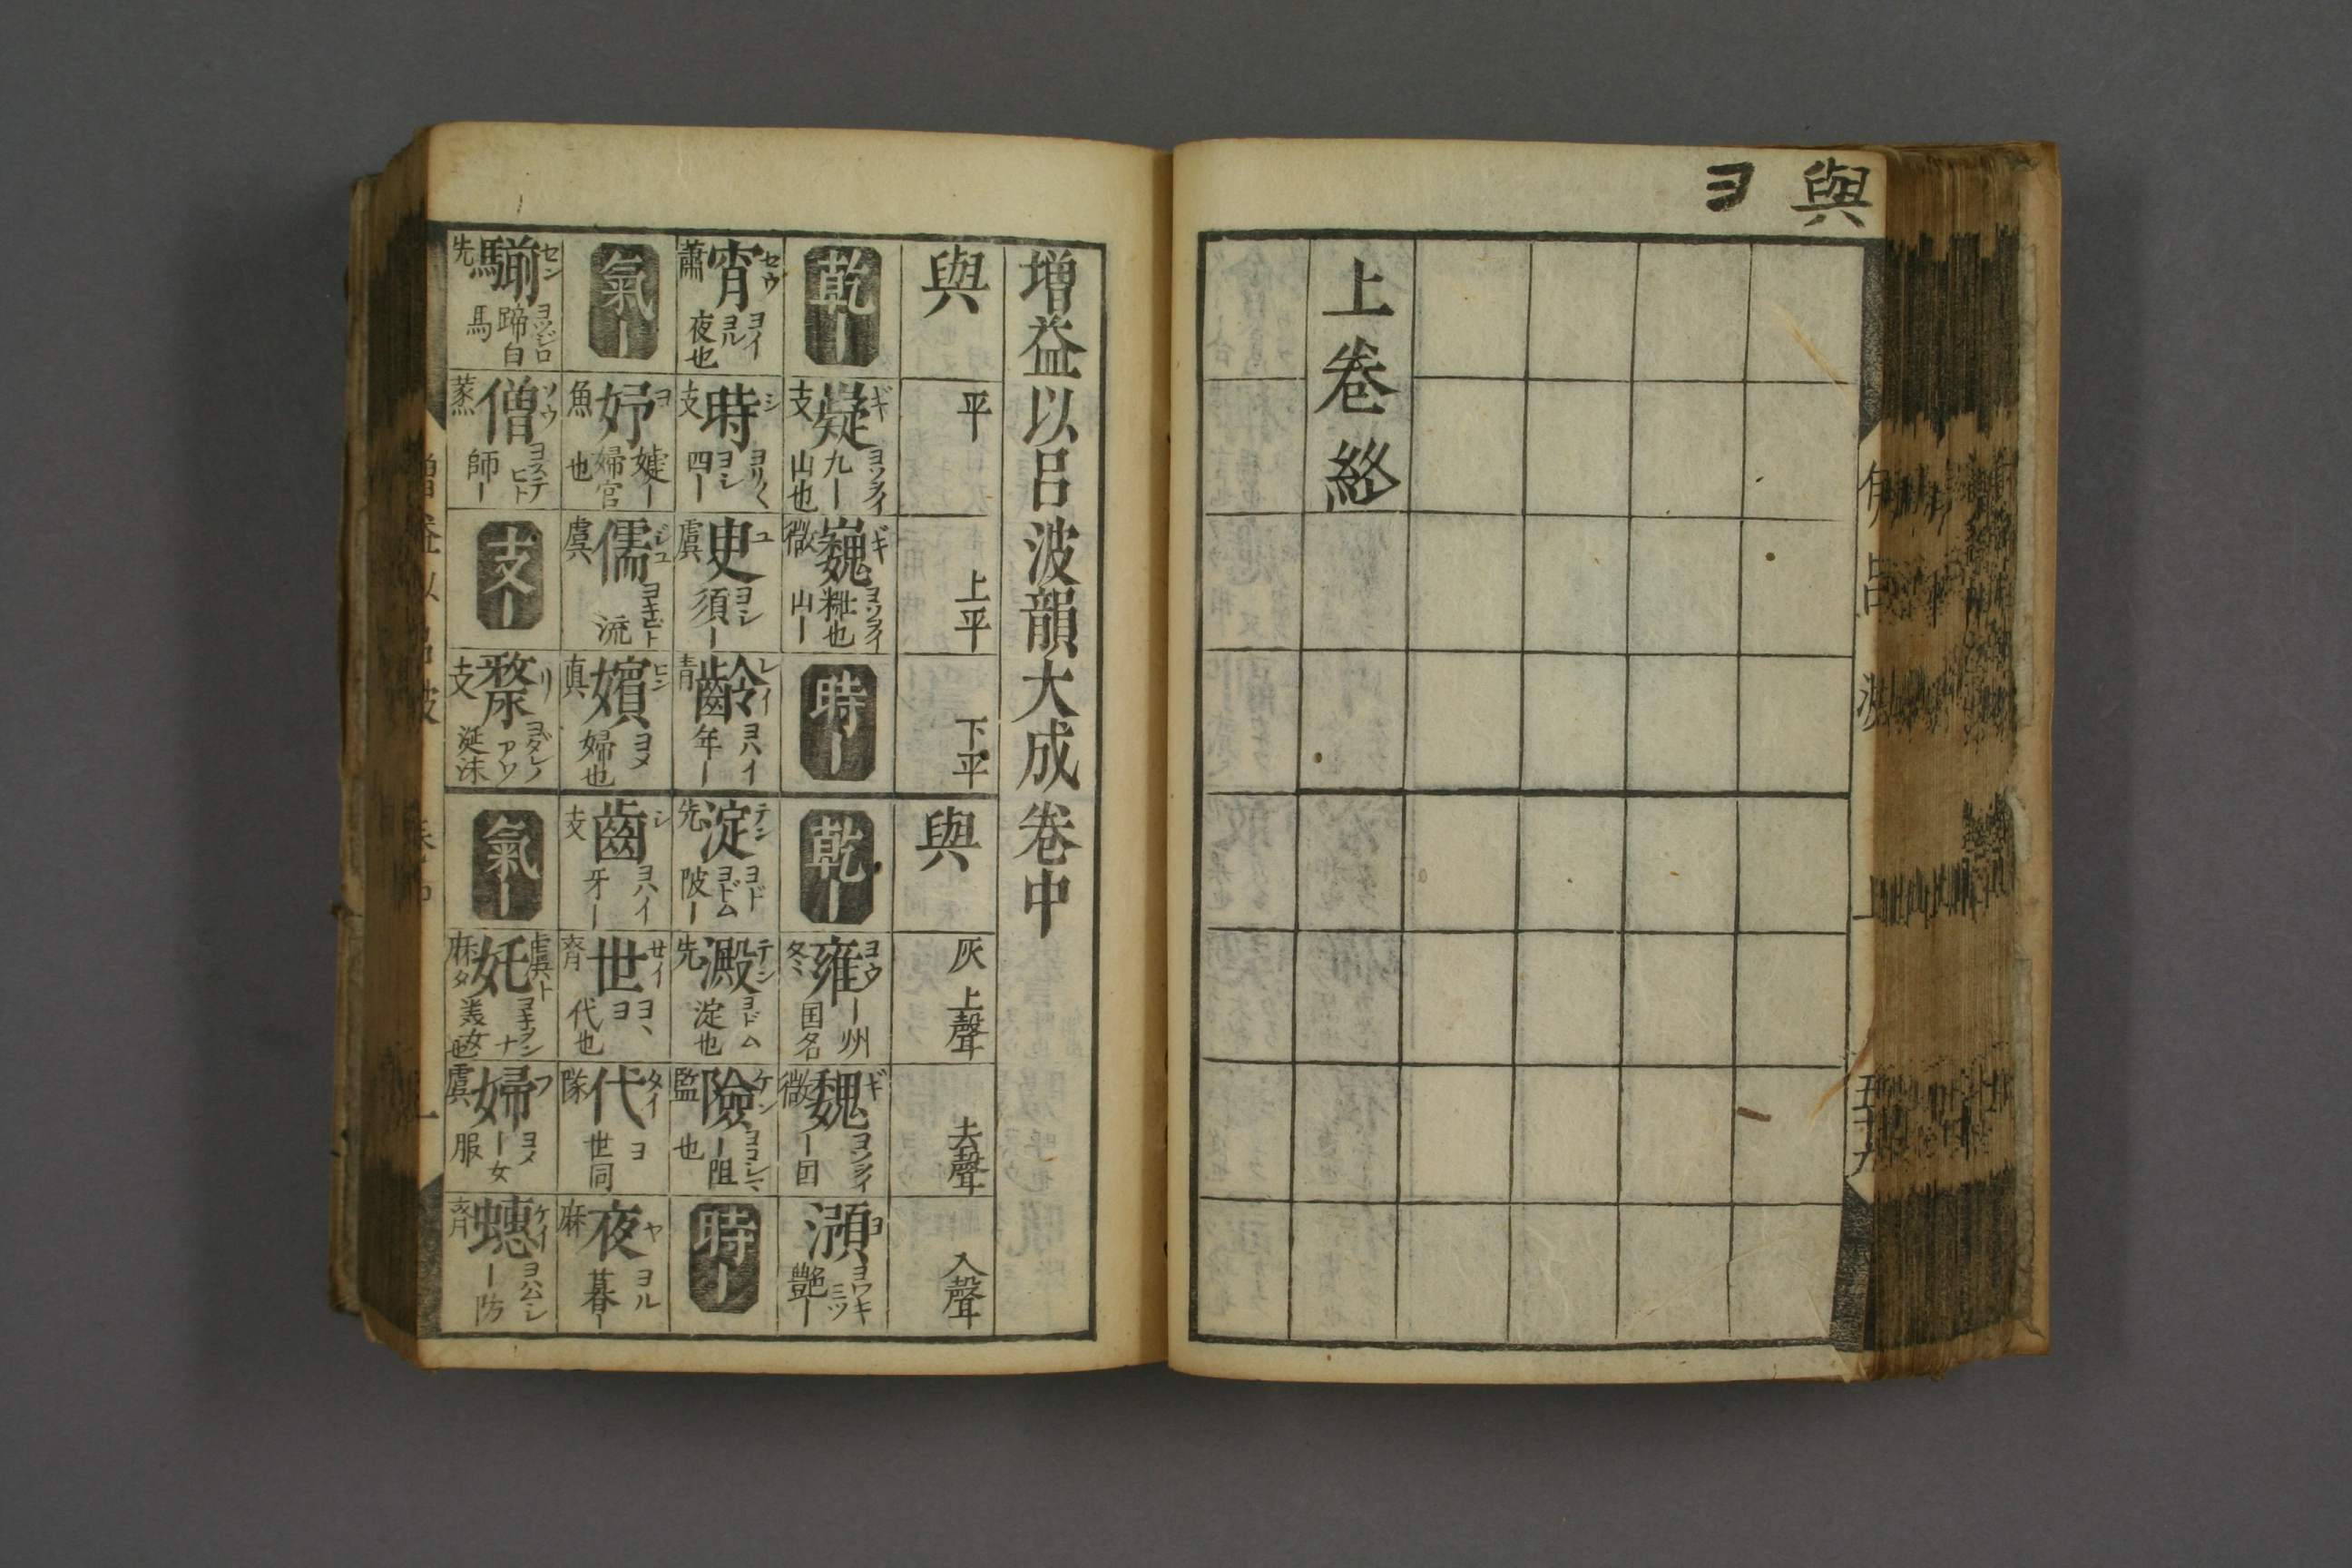 與
ヨ
上卷終
増益以呂波韻大成卷中
與
平
上平
下平
與
灰
上聲
去聲
入聲
乾ー
ギ 嶷 支 ヨソヲイ 九ー山也
ギ 巍 微 ヨソヲイ 山ー
時ー
乾ー
ヨウ 雍 冬 ー州国名
ギ 魏 微 ヨソヲイ ー国
ヨ 澦 ヨワキミツ 艶ー
セウ 宵 蕭 ヨイ ヨル 夜也
シ 時 支 ヨリ〱 ヨシ 四ー
ユ 臾 虞 ヨシ 須ー
レイ 齡 青 ヨハイ 年ー
テン 淀 先 ヨド ヨドム 陂ー
テン 澱 先 ヨドム 淀也
ケン 險 監 ヨコシマ ー阻也
時ー
氣ー
ヨ 妤 魚 婕ー婦官也
ジュ 儒 虞 流
ヒン 嬪 真 ヨメ 婦也
シ 齒 支 ヨハイ 牙ー
セイ 世 齊 ヨヽ ヨ 代也
タイ 代 隊 ヨ 世同
ヤ 夜 麻 ヨル 暮ー
セン 騚 先 ヨツジロ 蹄白馬
ソウ 僧 蒸 ヨステヒト 師ー
支ー
リ 漦 支 ヨダレノアワ 涎沫
氣ー
虞ト 妊 麻タ 美女也
フ 婦 虞 ヨメ ー女服
ケイ 蟪 齊 ー防